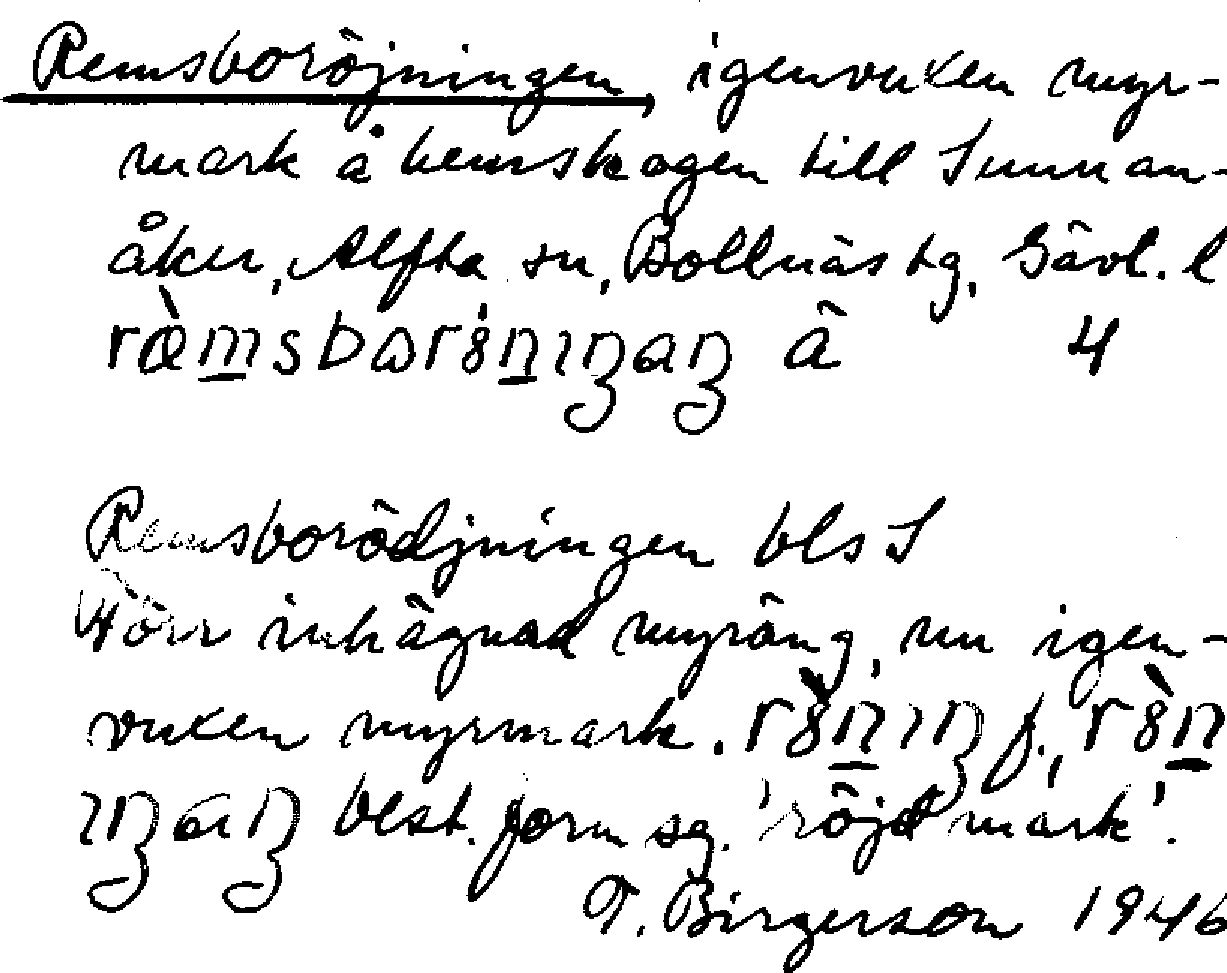 Remsboröjningen, igenvuxen myr-
mark å hemskogen till Sunnan-
åker, Alfta sn, Bollnäs tg, Gävl. l
ræmsbɷrȣnıŋaŋ â 4
Remsborödjningen bls S
Förr inhägnad myräng, nu igen-
vuxen myrmark. rȣ̀nıŋ f., rȣ̀n
ıŋaŋ best. form sg. 'röjd mark'.
T. Birgerson 1946